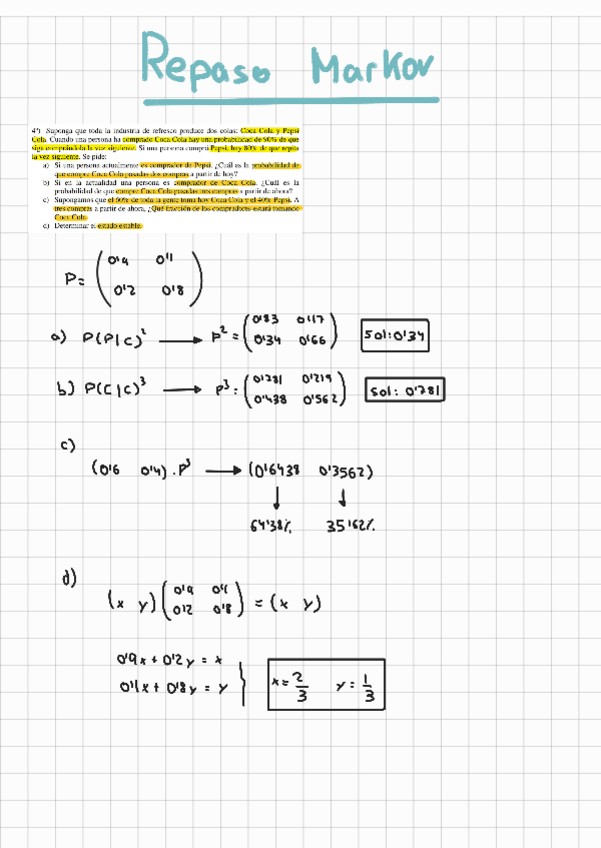 Repaso Markov
4º) Suponga que toda la industria de refresco produce dos colas: Coca Cola y Pepsi
Cola. Cuando una persona ha comprado Coca Cola hay una probabilidad de 90% de que
siga comprándola la vez siguiente. Si una persona compra Pepsi, hay 80% de que repita
la vez siguiente. Se pide:
a) Si una persona actualmente es comprador de Pepsi. ¿Cuál es la probabilidad de
que compre Coca Cola pasadas dos compras a partir de hoy?
b) Si en la actualidad una persona es comprador de Coca Cola. ¿Cuál es la
probabilidad de que compre Coca Cola pasadas tres compras a partir de ahora?
c) Supongamos que el 60% de toda la gente toma hoy Coca Cola y el 40% Pepsi. A
tres compras a partir de ahora, ¿Qué fracción de los compradores estará tomando
Coca Cola.
d) Determinar el estado estable.
P= (0'9 0'1
0'2 0'8)
a) P(P|C)² → P² = (0'83 0'17
0'34 0'66) Sol:0'34
b) P(C|C)³ → P³ = (0'781 0'219
0'438 0'562) Sol: 0'781
c)
(0'6 0'4) · P³ → (0'6438 0'3562)
64'38% 35'62%
d)
(x y) (0'9 0'1
0'2 0'8) = (x y)
0'9x + 0'2y = x
0'1x + 0'8y = y
x = 2/3 y = 1/3